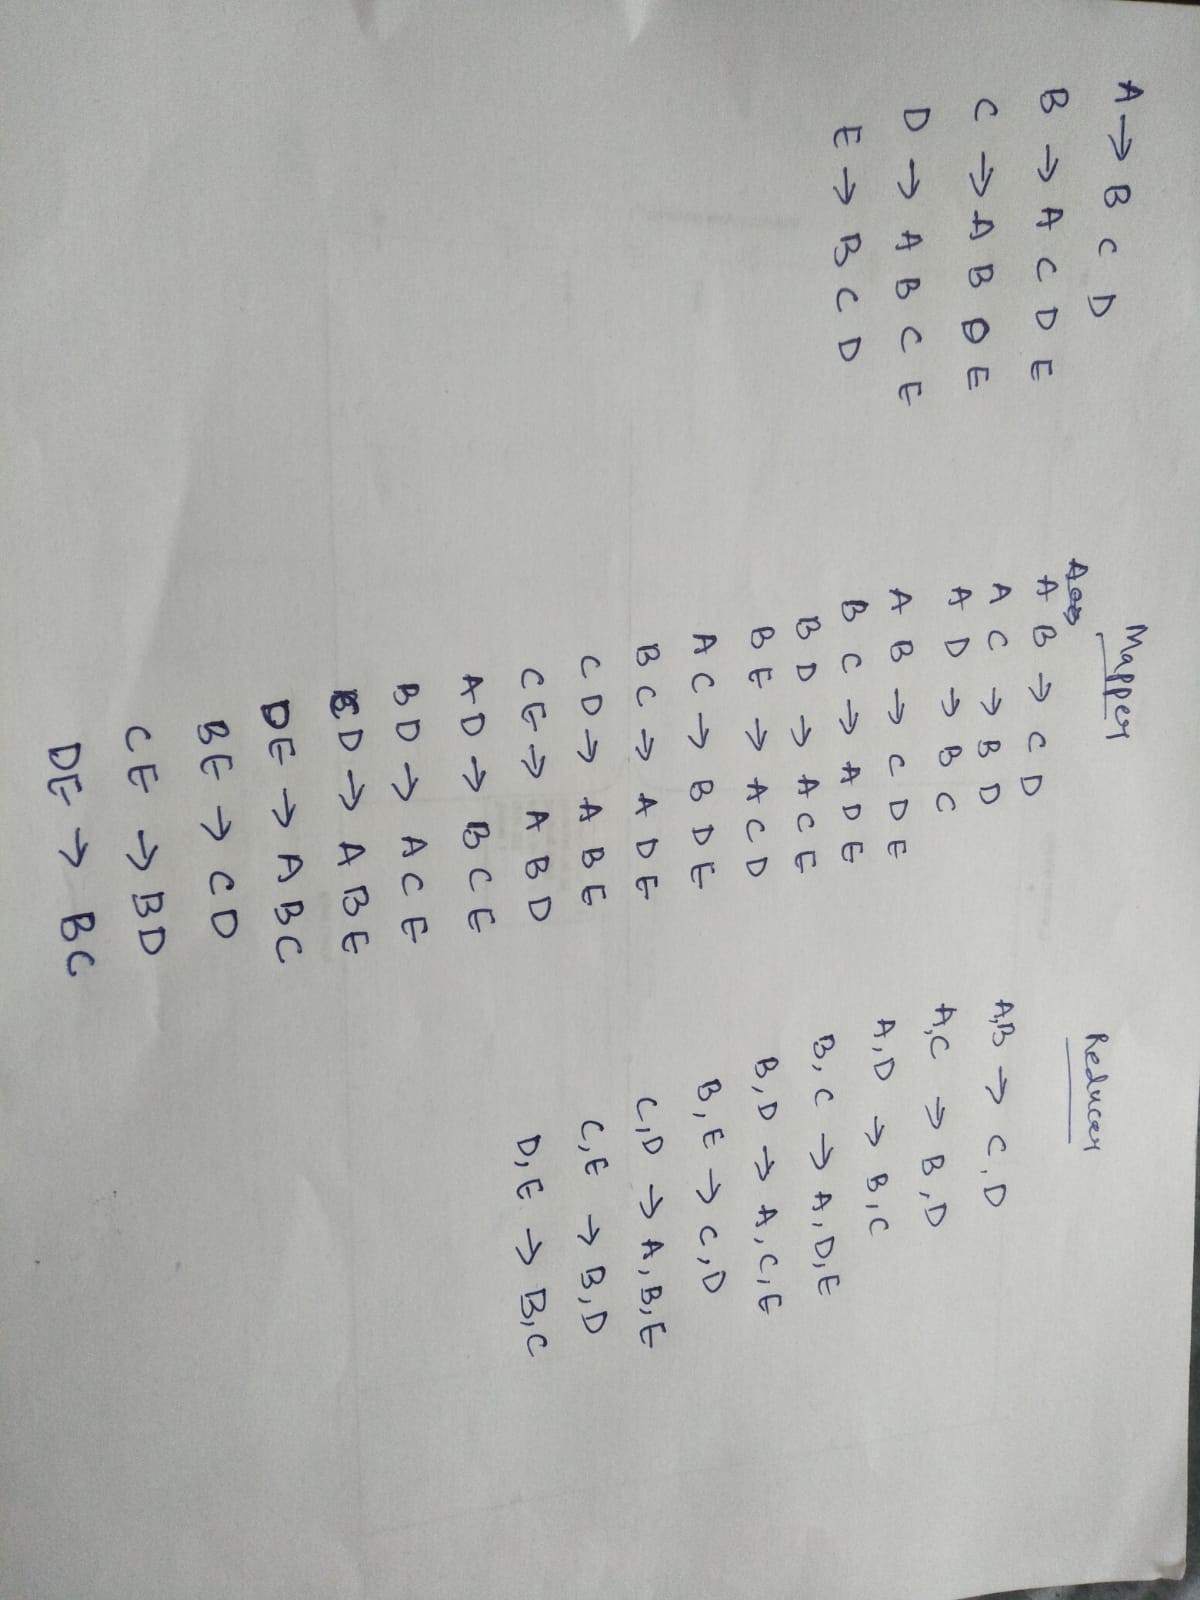 A → B C D
B → A C D E
C → A B D E
D → A B C E
E → B C D
Mapper
A B → C D
A C → B D
A D → B C
A B → C D E
B C → A D E
B D → A C E
B E → A C D
A C → B D E
B C → A D E
C D → A B E
C E → A B D
A D → B C E
B D → A C E
C D → A B E
D E → A B C
B E → C D
C E → B D
D E → B C
Reducer
A,B → C,D
A,C → B,D
A,D → B,C
B,C → A,D,E
B,D → A,C,E
B,E → C,D
C,D → A,B,E
C,E → B,D
D,E → B,C